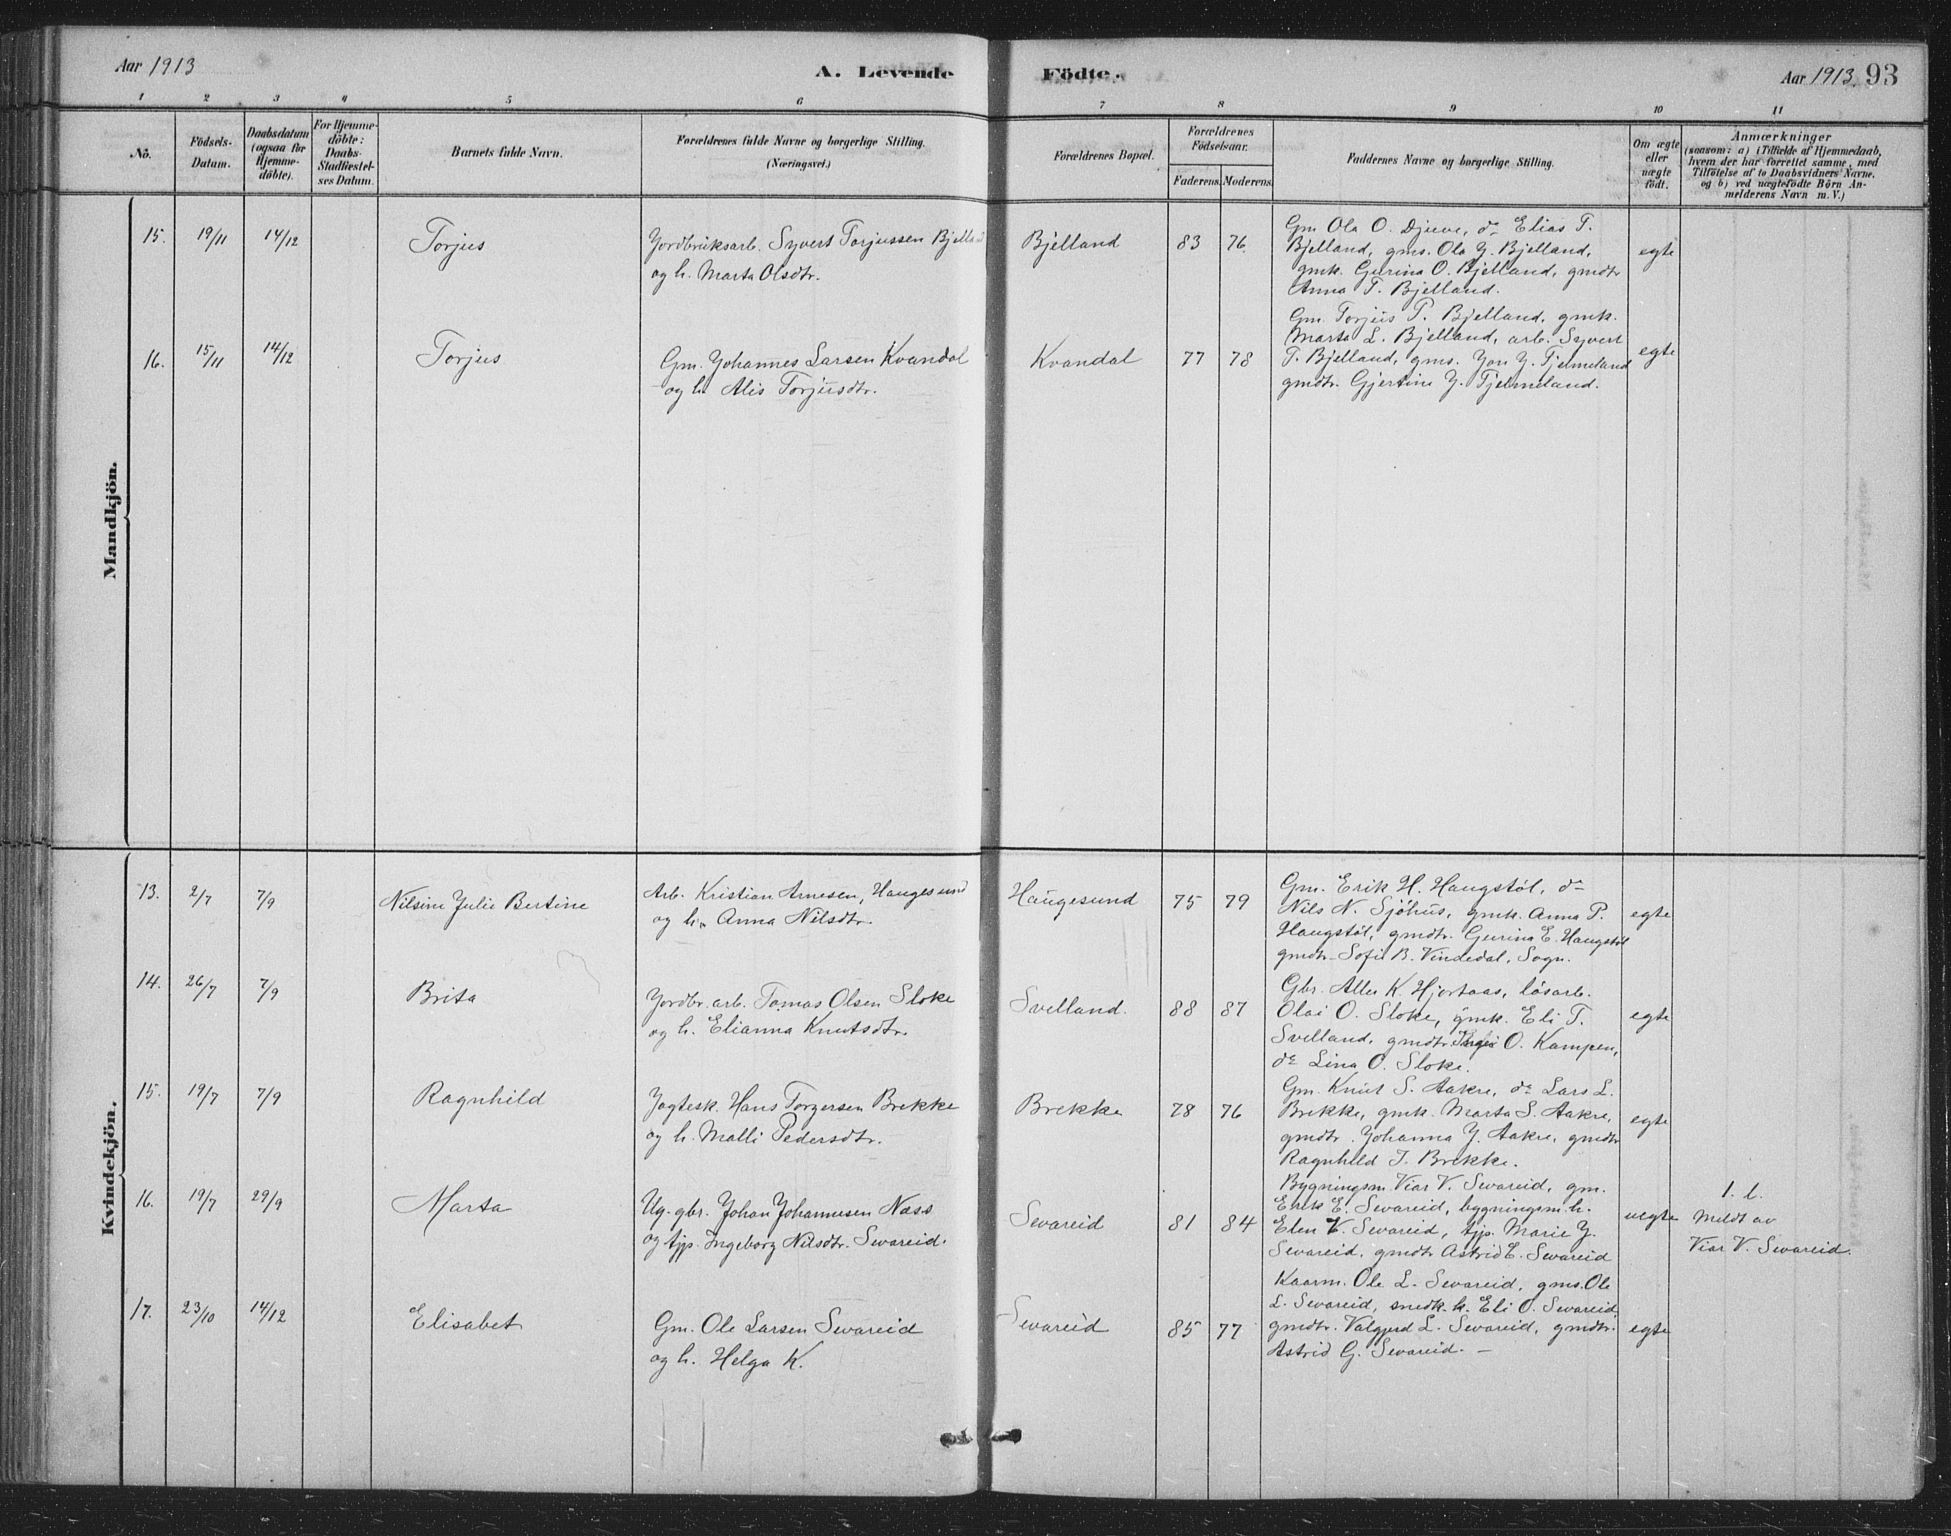 Aar 1913
A. Levende
Födte.
Aar 1913. 93
1 2 3 4 5 6 7 8 9 10 11
No.
Födsels-
Datum.
Daabsdatum
(ogsaa for
Hjemme-
döbte).
For Hjemme-
döbte:
Daabs-
Stadfæstel-
ses Datum.
Barnets fulde Navn.
Forældrenes fulde Navne og borgerlige Stilling.
(Næringsvei.)
Forældrenes Bopæl.
Forældrenes
Födselsaar.
Faderens. Moderens.
Faddernes Navne og borgerlige Stilling.
Om ægte
eller
uægte
födt.
Anmærkninger
(saasom: a) i Tilfælde af Hjemmedaab,
hvem der har forrettet samme, med
Tilföielse af to Daabsvidners Navne.
og b) ved uægtefödte Börn An-
melderens Navn m. V.)
Mandkjön.
15. 19/11 14/12 Torjus
Jordbruksarb. Syvert Torjussen Bjelland
og h. Marta Olsdtr.
Bjelland 83 76.
Gm Ola O. Djuve, do Elias T.
Bjelland, gms. Ola J. Bjelland,
gmk. Gurina O. Bjelland, gmdtr
Anna T. Bjelland.
egte
16. 15/11 14/12 Torjus
Gm. Johannes Larsen Kvandal
og h. Alis Torjusdtr.
Kvandal 77 78
Gm. Torjus P. Bjelland, gmk.
Marta L. Bjelland, arb. Syvert
T. Bjelland, gms. Jon J. Tjelmeland
gmdtr. Gjertine J. Tjelmeland.
egte
Kvindekjön.
13. 2/7 7/9 Nilsine Julie Bertine
Arb. Kristian Arnesen, Haugesund
og h. Anna Nilsdtr.
Haugesund 75 79
Gm. Erik H. Haugstöl, do
Nils N. Sjöhus, gmk. Anna P.
Haugstöl, gmdtr. Gurina E. Haugstöl
gmdtr. Sofie B. Vindedal, Sogn.
egte
14. 26/7 7/9 Brita
Jordbr. arb. Tomas Olsen Sloke
og h. Elianna Knutsdtr.
Svelland. 88 87
Gbr. Atle K. Hjortaas, lösarb.
Olai O. Sloke, gmk. Eli T.
Svelland, gmdtr. O. Kampen,
do Lina O. Sloke.
egte
15. 19/7 7/9 Ragnhild
Jagtesk. Hans Torgersen Brekke
og h. Malli Pedersdtr.
Brekke 78 76
Gm. Knut S. Aakre, do Lars L.
Brekke, gmk. Marta S. Aakre,
gmdtr. Johanna J. Aakre, gmdtr
Ragnhild T. Brekke.
egte
16. 19/7 29/9 Marta
Ug. gbr. Johan Johannesen Næss
og tjp. Ingeborg Nilsdtr. Sevareid.
Sevareid 81 84
Bygningsm. Viar V. Sevareid, gm.
Erik E. Sevareid, bygningsm. h.
Elen V. Sevareid, tjp. Marie J.
Sevareid, gmdtr Astrid E. Sevareid
uegte
1. l.
Meldt av
Viar V. Sevareid.
17. 23/10 14/12 Elisabet
Gm. Ole Larsen Sevareid
og h. Helga K.
Sevareid 85 77
Kaarm. Ole L. Sevareid, gms. Ole
L. Sevareid, snedk. h. Eli O. Sevareid
gmdtr. Valgjerd L. Sevareid, gmdtr.
Astrid G. Sevareid. –
egte